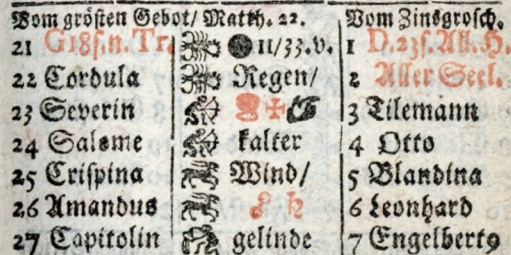 Vom grösten Gebot/ Matth. 22. Vom Zinsgrosch.
21 G18 s.n. Tr. 11/33.v. 1 D.23 s. All. H.
22 Cordula Regen/ 2 Aller Seel.
23 Severin 3 Tilemann
24 Salome kalter 4 Otto
25 Crispina Wind/ 5 Blandina
26 Amandus ☍ ♄ 6 Leonhard
27 Capitolin gelinde 7 Engelbert9